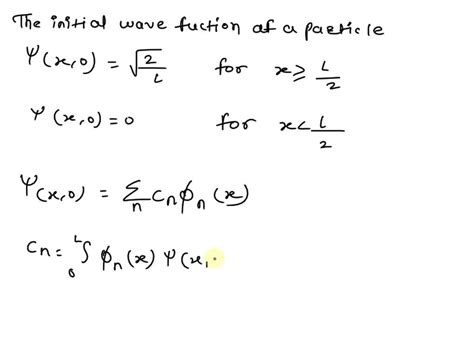 The initial wave fuction of a particle
Ψ(x,0) = √2/L for x ≥ L/2
Ψ(x,0) = 0 for x < L/2
Ψ(x,0) = Σn cn ϕn(x)
cn = 0∫L ϕn(x) Ψ(x,